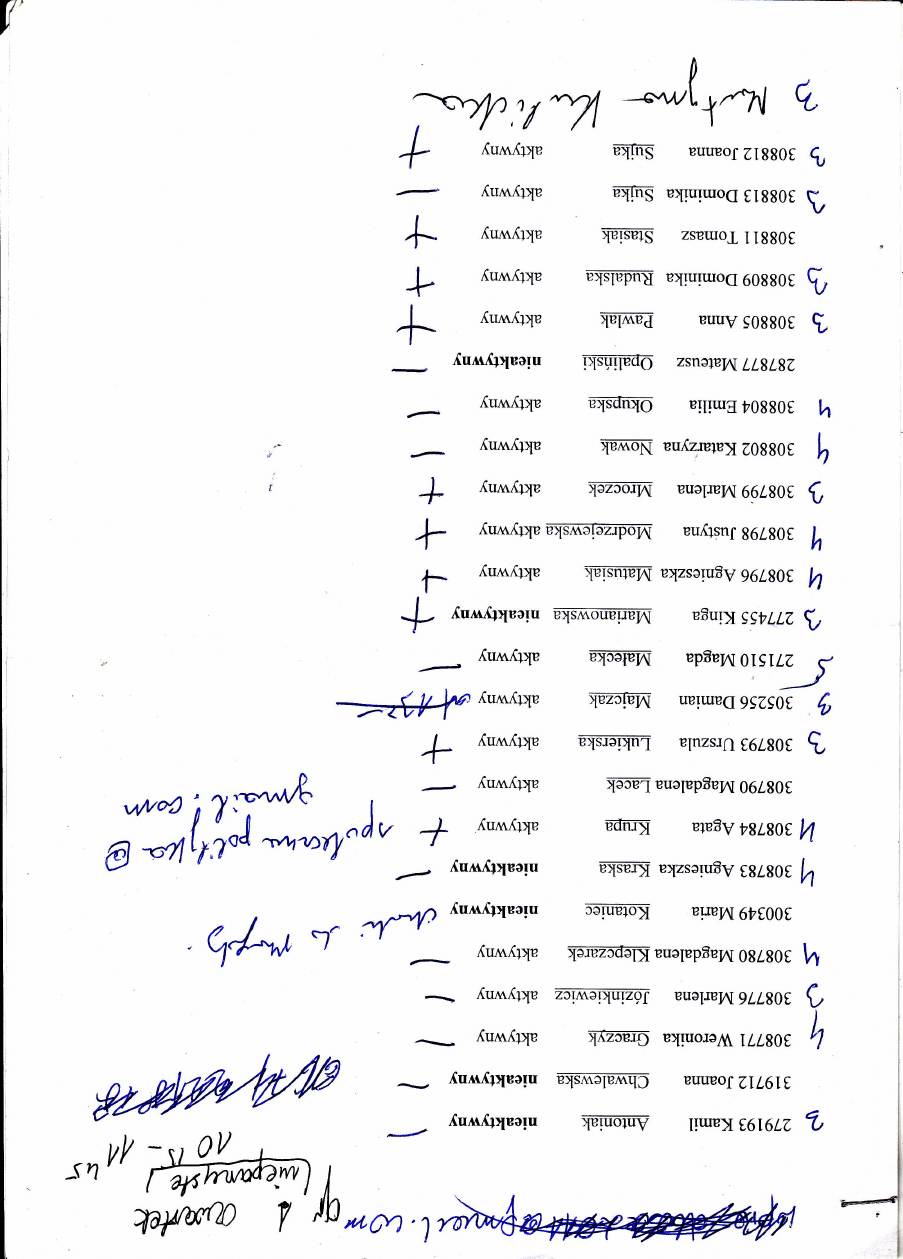 gr 1 czwartek
(nieparzyste)
10 15 - 11 45
3 279193 Kamil Antoniak nieaktywny —
319712 Joanna Chwalewska nieaktywny —
4 308771 Weronika Graczyk aktywny —
3 308776 Marlena Józinkiewicz aktywny —
4 308780 Magdalena Klepczarek aktywny —
300349 Maria Kotaniec nieaktywny chodzi do
4 308783 Agnieszka Kraska nieaktywny —
4 308784 Agata Krupa aktywny + spoleczna polityka @
gmail.com
308790 Magdalena Lacek aktywny —
3 308793 Urszula Lukierska aktywny +
3 305256 Damian Majczak aktywny
5 271510 Magda Małecka aktywny —
3 277455 Kinga Marianowska nieaktywny +
4 308796 Agnieszka Matusiak aktywny +
4 308798 Justyna Modrzejewska aktywny +
3 308799 Marlena Mroczek aktywny +
4 308802 Katarzyna Nowak aktywny —
4 308804 Emilia Okupska aktywny —
287877 Mateusz Opaliński nieaktywny —
3 308805 Anna Pawlak aktywny +
3 308809 Dominika Rudalska aktywny +
308811 Tomasz Stasiak aktywny +
3 308813 Dominika Sujka aktywny —
3 308812 Joanna Sujka aktywny +
3 Martyna Kulicka